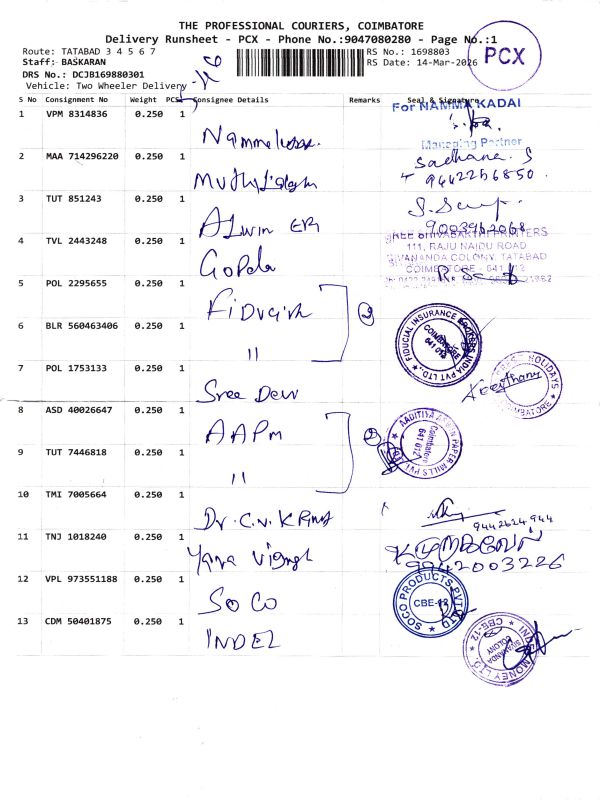 THE PROFESSIONAL COURIERS, COIMBATORE
Delivery Runsheet - PCX - Phone No.:9047080280 - Page No.:1
Route: TATABAD 3 4 5 6 7
RS No.: 1698803
Staff: BASKARAN
RS Date: 14-Mar-2026
PCX
DRS No.: DCJB169880301
Vehicle: Two Wheeler Delivery
S No Consignment No Weight PCS Consignee Details Remarks Seal & Signature
For NAMMA KADAI
1 VPM 8314836 0.250 1
Managing Partner
2 MAA 714296220 0.250 1 Sadhana. S
9442256850.
3 TUT 851243 0.250 1 Alwin ER
9003962068
SREE SHIVASAKTHI PRINTERS
111, RAJU NAIDU ROAD
SIVANANDA COLONY, TATABAD
COIMBATORE - 641 012
4 TVL 2443248 0.250 1 Gopala
5 POL 2295655 0.250 1 2
6 BLR 560463406 0.250 1 "
FIDUCIAL INSURANCE BROKERS INDIA PVT LTD.,
COIMBATORE 641 012
7 POL 1753133 0.250 1 Sree Devi
SREE HOLIDAYS
COIMBATORE
Keerthana
8 ASD 40026647 0.250 1 AAPM 2
9 TUT 7446818 0.250 1 "
AADITIYA ASWIN PAPER MILLS PVT LTD
Coimbatore 641 012
10 TMI 7005664 0.250 1 Dr. C.V. K
9442624944
11 TNJ 1018240 0.250 1 Yana Vignesh
9942003226
12 VPL 973551188 0.250 1 SOCO
SOCO PRODUCTS PVT LTD
CBE-12
13 CDM 50401875 0.250 1 INDEL
INDEL MONEY LTD.
SIVANANDA COLONY
CBE-12